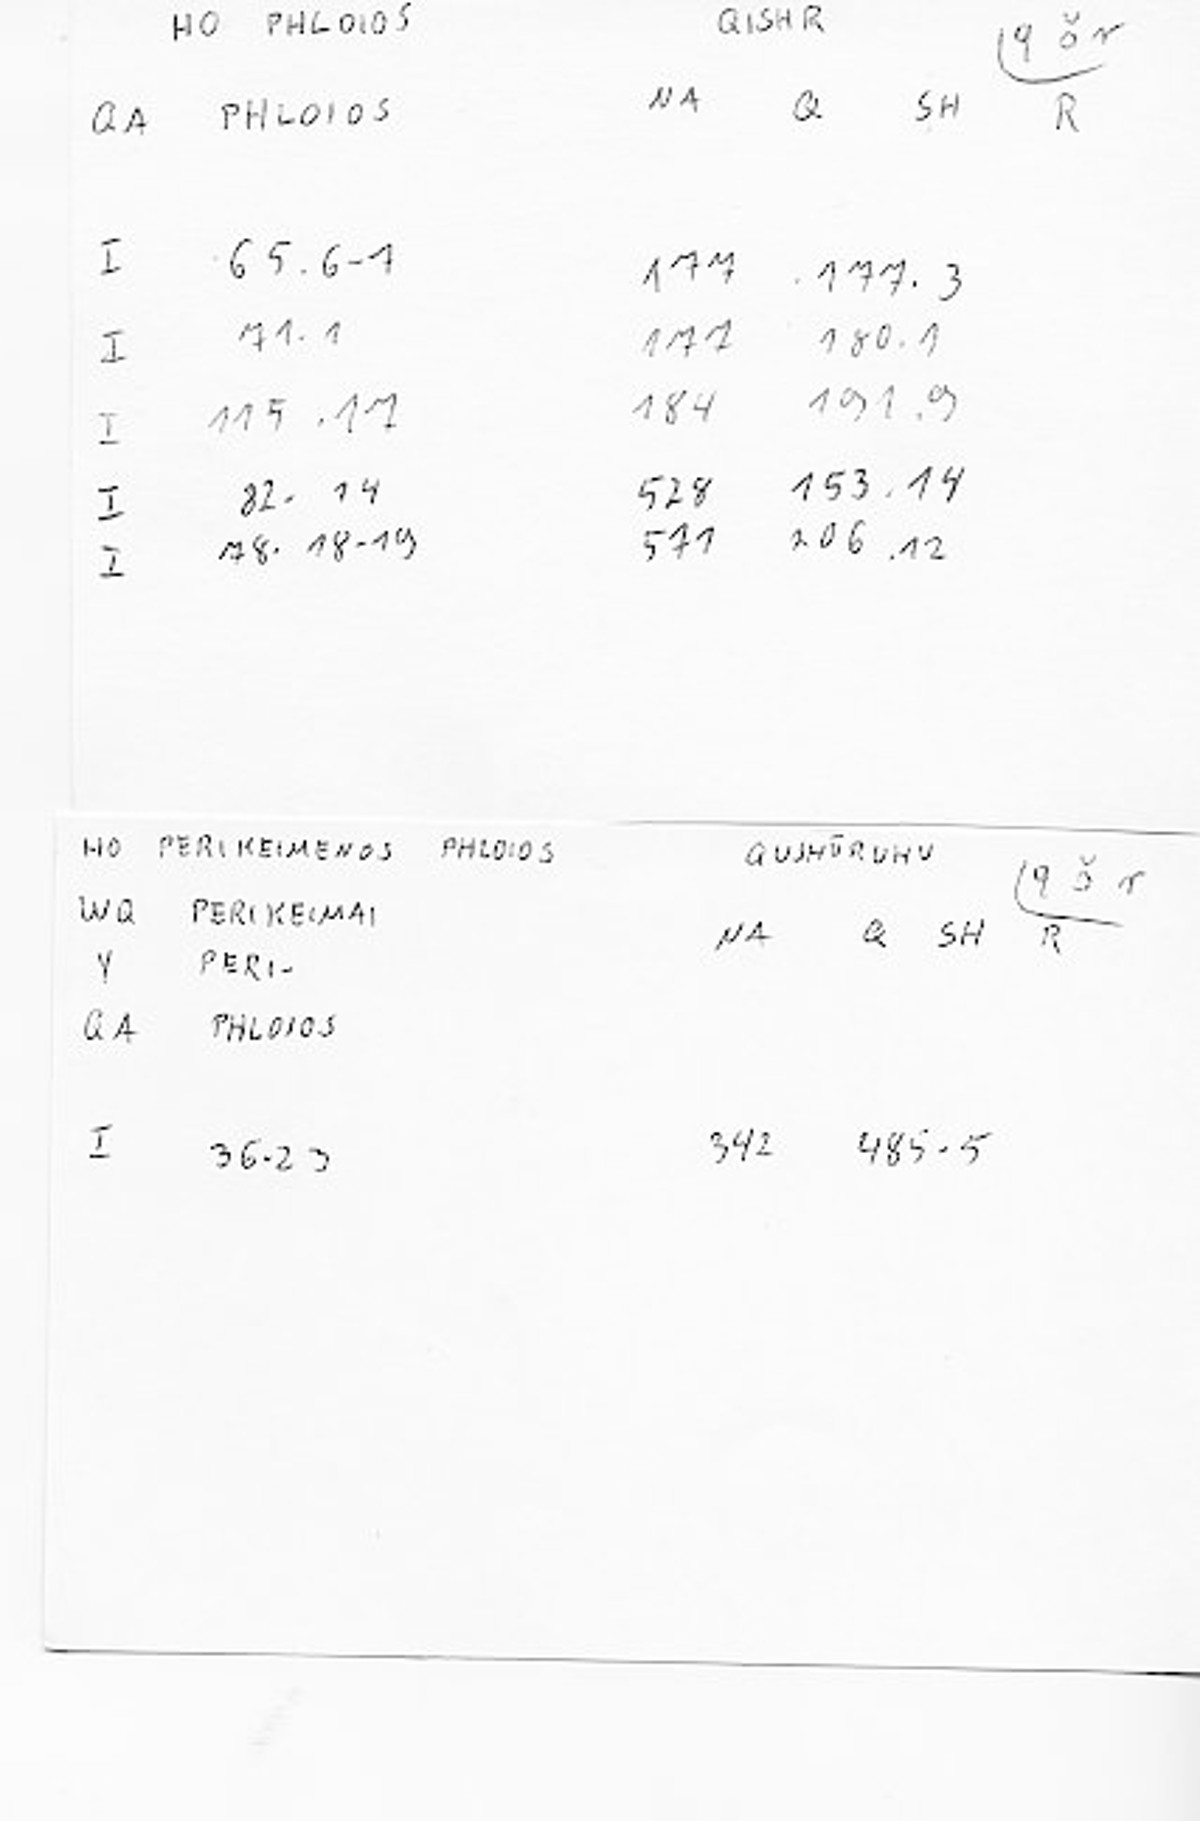 HO PHLOIOS QISHR q š r
QA PHLOIOS NA Q SH R
I 65.6-7 177 177.3
I 71.1 177 180.1
I 115.17 184 191.9
I 82.14 528 153.14
I 78.18-19 571 206.12
HO PERIKEIMENOS PHLOIOS QUSHŪRUHU q š r
WQ PERIKEIMAI NA Q SH R
Y PERI-
QA PHLOIOS
I 36.23 342 485.5